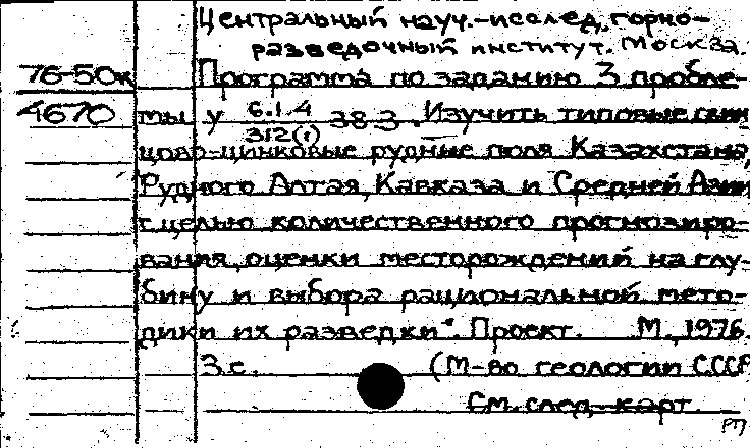 Центральный науч.-исслед. горно-
разведочный институт. Москва.
76-50к Программа по заданию 3 пробле-
4670 мы У 6.1.4 383 . Изучить типовые свин
312(1)
цово-цинковые рудные поля Казахстана,
Рудного Алтая, Кавказа и Средней Азии
с целью количественного прогнозиро-
вания, оценки месторождений на глу-
бину и выбора рациональной мето-
дики их разведки". Проект. М., 1976.
3 с. (М-во геологии СССР
См. след. карт.
РП